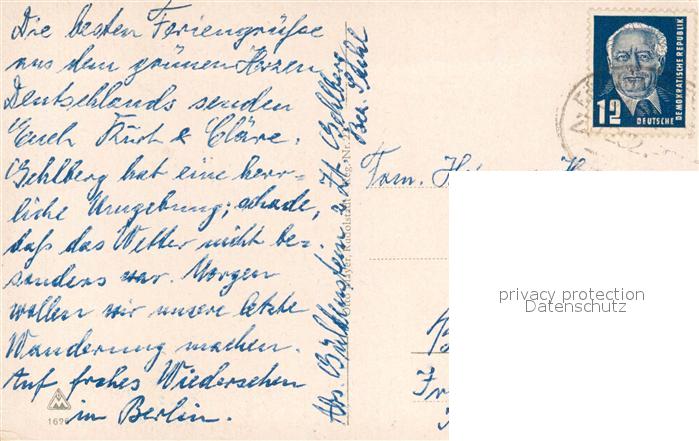 Die besten Feriengrüße
aus dem grünen Herzen
Deutschlands senden
Euch Kurt & Cläre.
Gehlberg hat eine herr-
liche Umgebung; schade,
daß das Wetter nicht be-
sonders war. Morgen
wollen wir unsere letzte
Wanderung machen.
Auf frohes Wiedersehen
in Berlin.
Abs. Güldenstein z. Zt. Gehlberg
Bez. Suhl
Fam.
12
DEUTSCHE
DEMOKRATISCHE REPUBLIK
privacy protection
Datenschutz